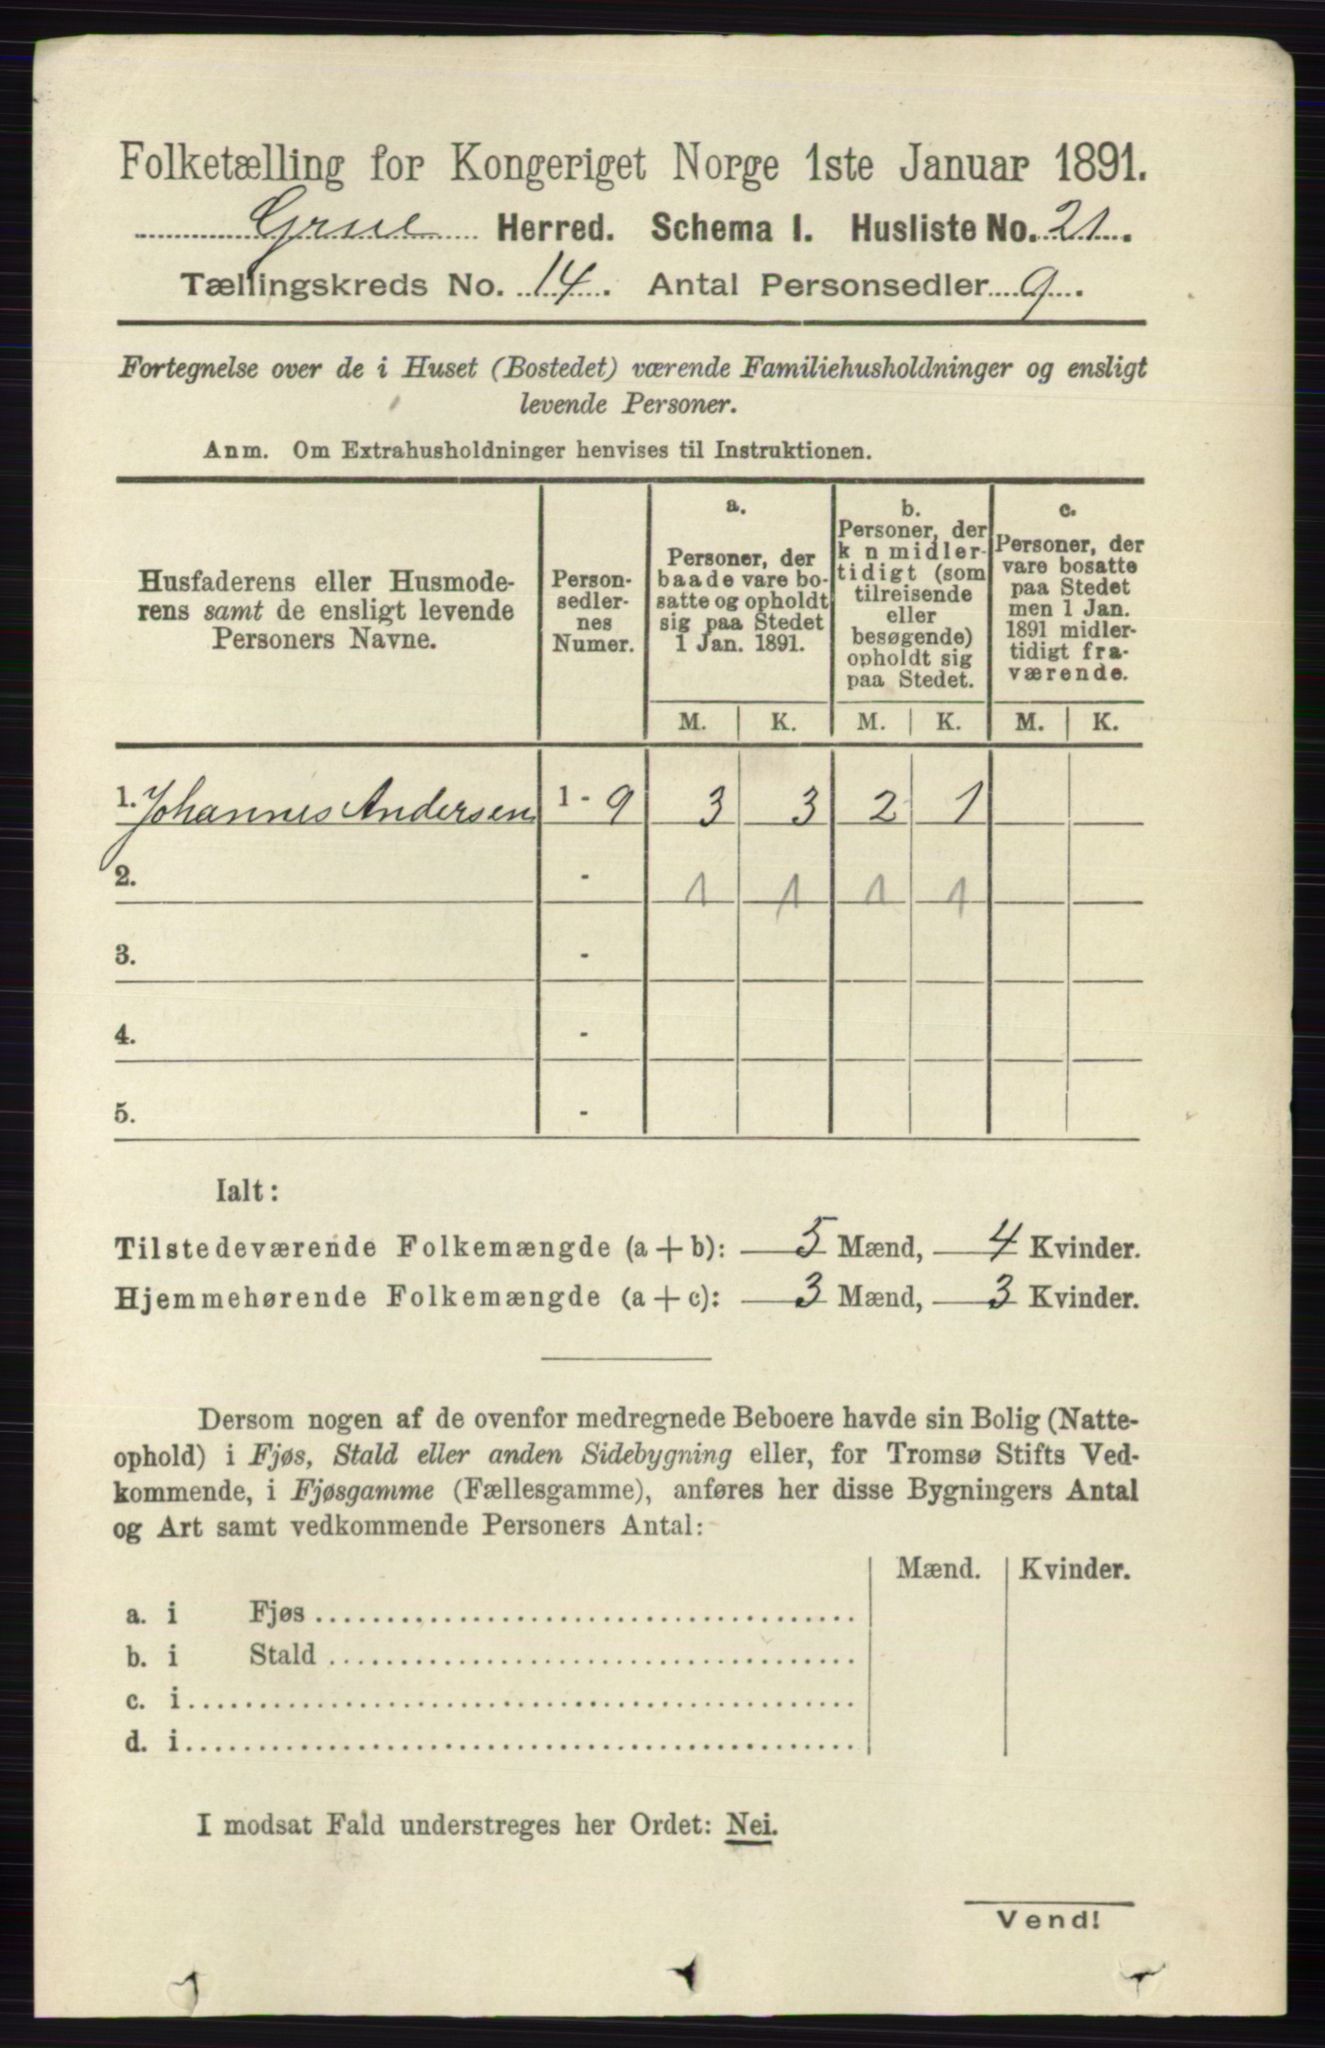 Folketælling for Kongeriget Norge 1ste Januar 1891.
Grue Herred. Schema I. Husliste No. 21.
Tællingskreds No. 14. Antal Personsedler 9.
Fortegnelse over de i Huset (Bostedet) værende Familiehusholdninger og ensligt
levende Personer.
Anm. Om Extrahusholdninger henvises til Instruktionen.
Husfaderens eller Husmode-
rens samt de ensligt levende
Personers Navne.
Person-
sedler-
nes
Numer.
a.
Personer, der
baade vare bo-
satte og opholdt
sig paa Stedet
1 Jan. 1891.
b.
Personer, der
k n midler-
tidigt (som
tilreisende
eller
besøgende)
opholdt sig
paa Stedet.
c.
Personer, der
vare bosatte
paa Stedet
men 1 Jan.
1891 midler-
tidigt fra-
værende.
M. K. M. K. M. K.
1. Johannes Andersen 1 - 9 3 3 2 1
2. - 1 1 1 1
3. -
4. -
5. -
Ialt:
Tilstedeværende Folkemængde (a + b): 5 Mænd, 4 Kvinder.
Hjemmehørende Folkemængde (a + c): 3 Mænd, 3 Kvinder.
Dersom nogen af de ovenfor medregnede Beboere havde sin Bolig (Natte-
ophold) i Fjøs, Stald eller anden Sidebygning eller, for Tromsø Stifts Ved-
kommende, i Fjøsgamme (Fællesgamme), anføres her disse Bygningers Antal
og Art samt vedkommende Personers Antal:
Mænd. Kvinder.
a. i Fjøs
b. i Stald
c. i
d. i
I modsat Fald understreges her Ordet: Nei.
Vend!